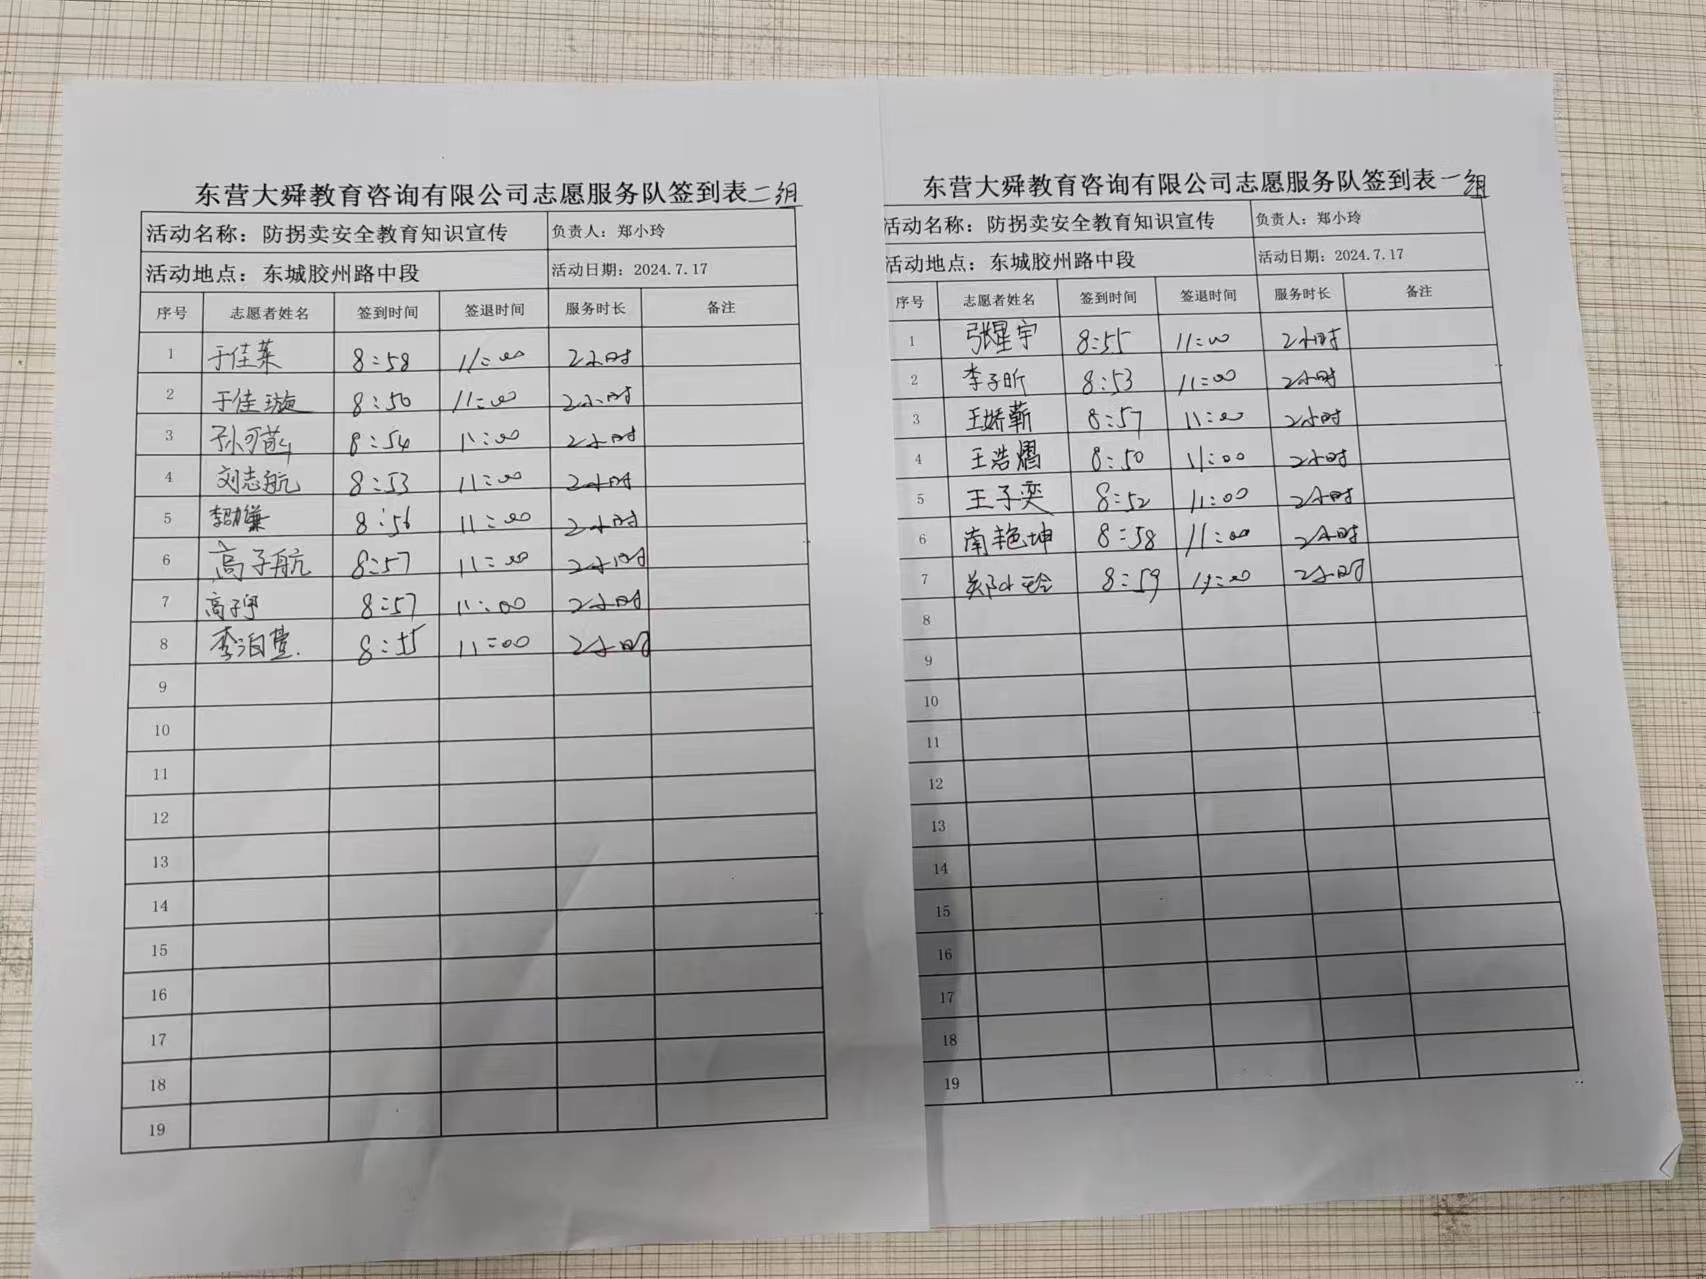 东营大舜教育咨询有限公司志愿服务队签到表二组
活动名称：防拐卖安全教育知识宣传 负责人：郑小玲
活动地点：东城胶州路中段 活动日期：2024.7.17
序号 志愿者姓名 签到时间 签退时间 服务时长 备注
1 于佳莱 8:58 11:00 2小时
2 于佳璇 8:50 11:00 2小时
3 孙可 8:54 11:00 2小时
4 刘志航 8:53 11:00 2小时
5 李 8:56 11:00 2小时
6 高子航 8:57 11:00 2小时
7 高子 8:57 11:00 2小时
8 李泊萱 8:55 11:00 2小时
9
10
11
12
13
14
15
16
17
18
19
东营大舜教育咨询有限公司志愿服务队签到表一组
活动名称：防拐卖安全教育知识宣传 负责人：郑小玲
活动地点：东城胶州路中段 活动日期：2024.7.17
序号 志愿者姓名 签到时间 签退时间 服务时长 备注
1 张星宇 8:55 11:00 2小时
2 李子昕 8:53 11:00 2小时
3 王娇蕲 8:57 11:00 2小时
4 王浩熠 8:50 11:00 2小时
5 王子奕 8:52 11:00 2小时
6 南艳坤 8:58 11:00 2小时
7 郑小玲 8:59 11:00 2小时
8
9
10
11
12
13
14
15
16
17
18
19